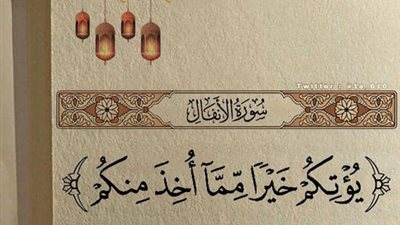 سُورَةُ الأَنفَال
يُؤْتِكُمْ خَيْرًا مِّمَّآ أُخِذَ مِنكُمْ